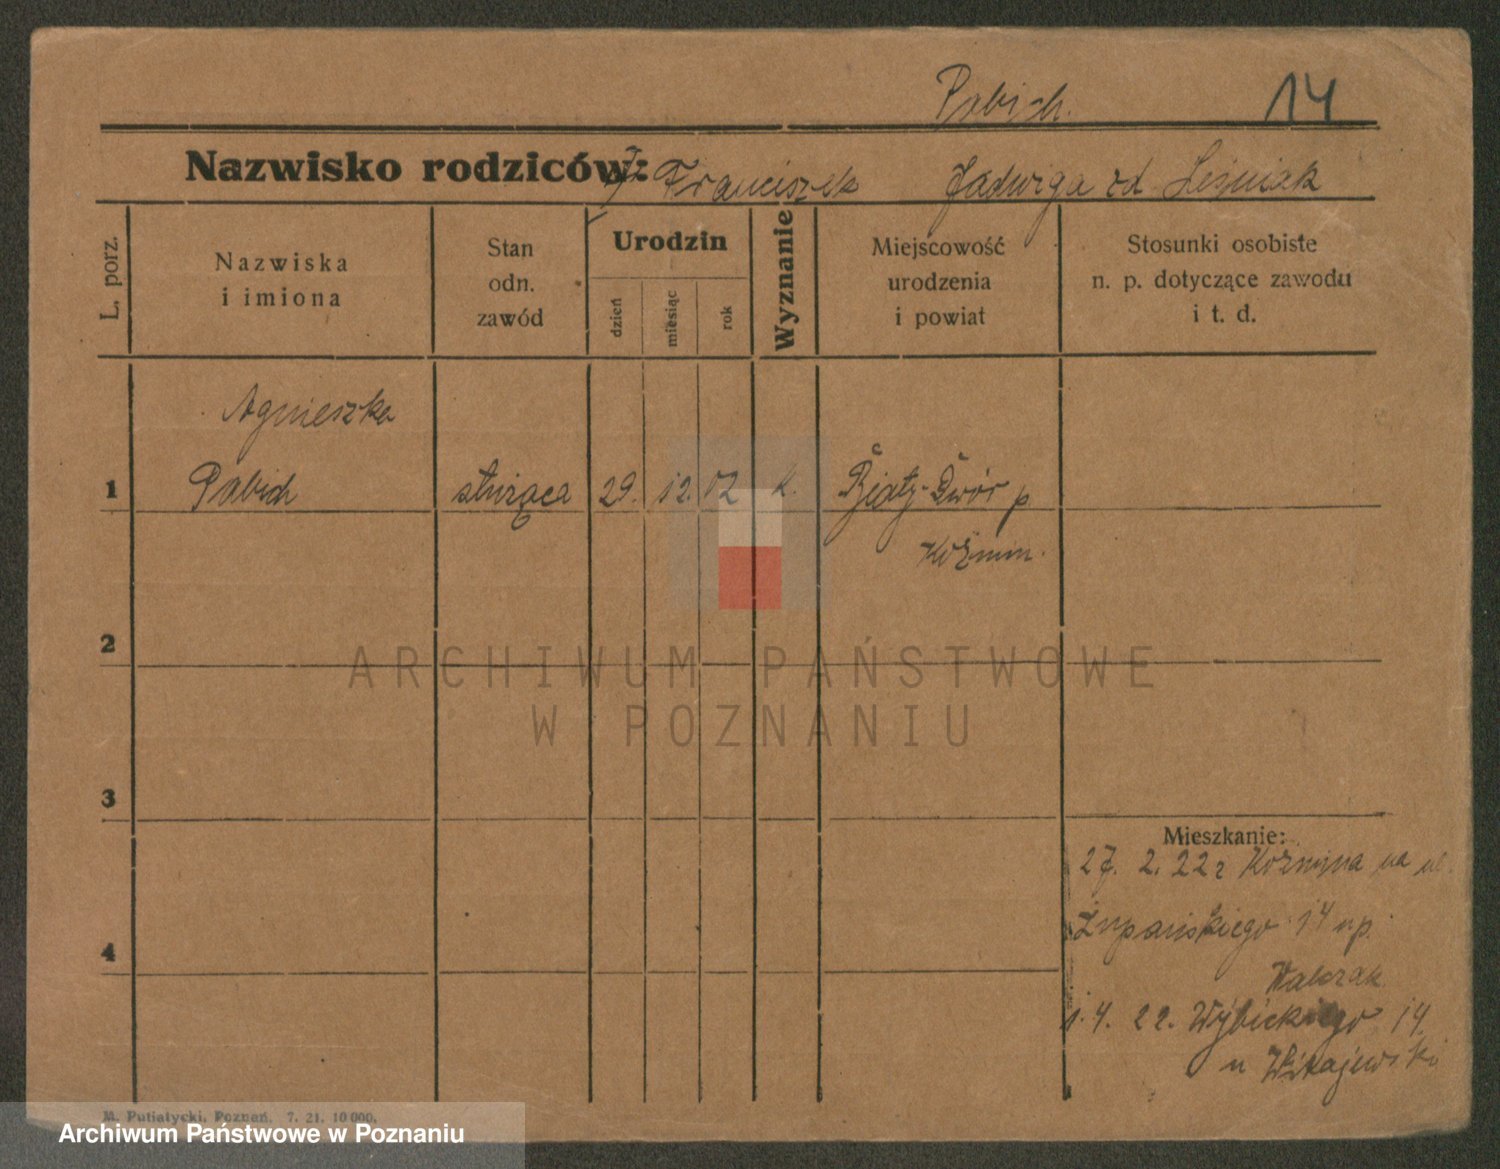 Pabich. 14
Nazwisko rodziców: Franciszek Jadwiga zd Leśniak
L. porz.
Nazwiska
i imiona
Stan
odn.
zawód
Urodzin
dzień
miesiąc
rok
Wyznanie
Miejscowość
urodzenia
i powiat
Stosunki osobiste
n. p. dotyczące zawodu
i t. d.
Agnieszka
1 Pabich służąca 29. 12. 02 k. Biały-Dwór p
Koźmin.
2
ARCHIWUM PAŃSTWOWE
W POZNANIU
3
Mieszkanie:
27. 2. 22 z Koźmina na ul.
Żupańskiego 14 u p.
Walczak
4
1. 4. 22. Wybickiego 14.
u Witajewski
M. Putiatycki, Poznań. 7. 21. 10 000.
Archiwum Państwowe w Poznaniu